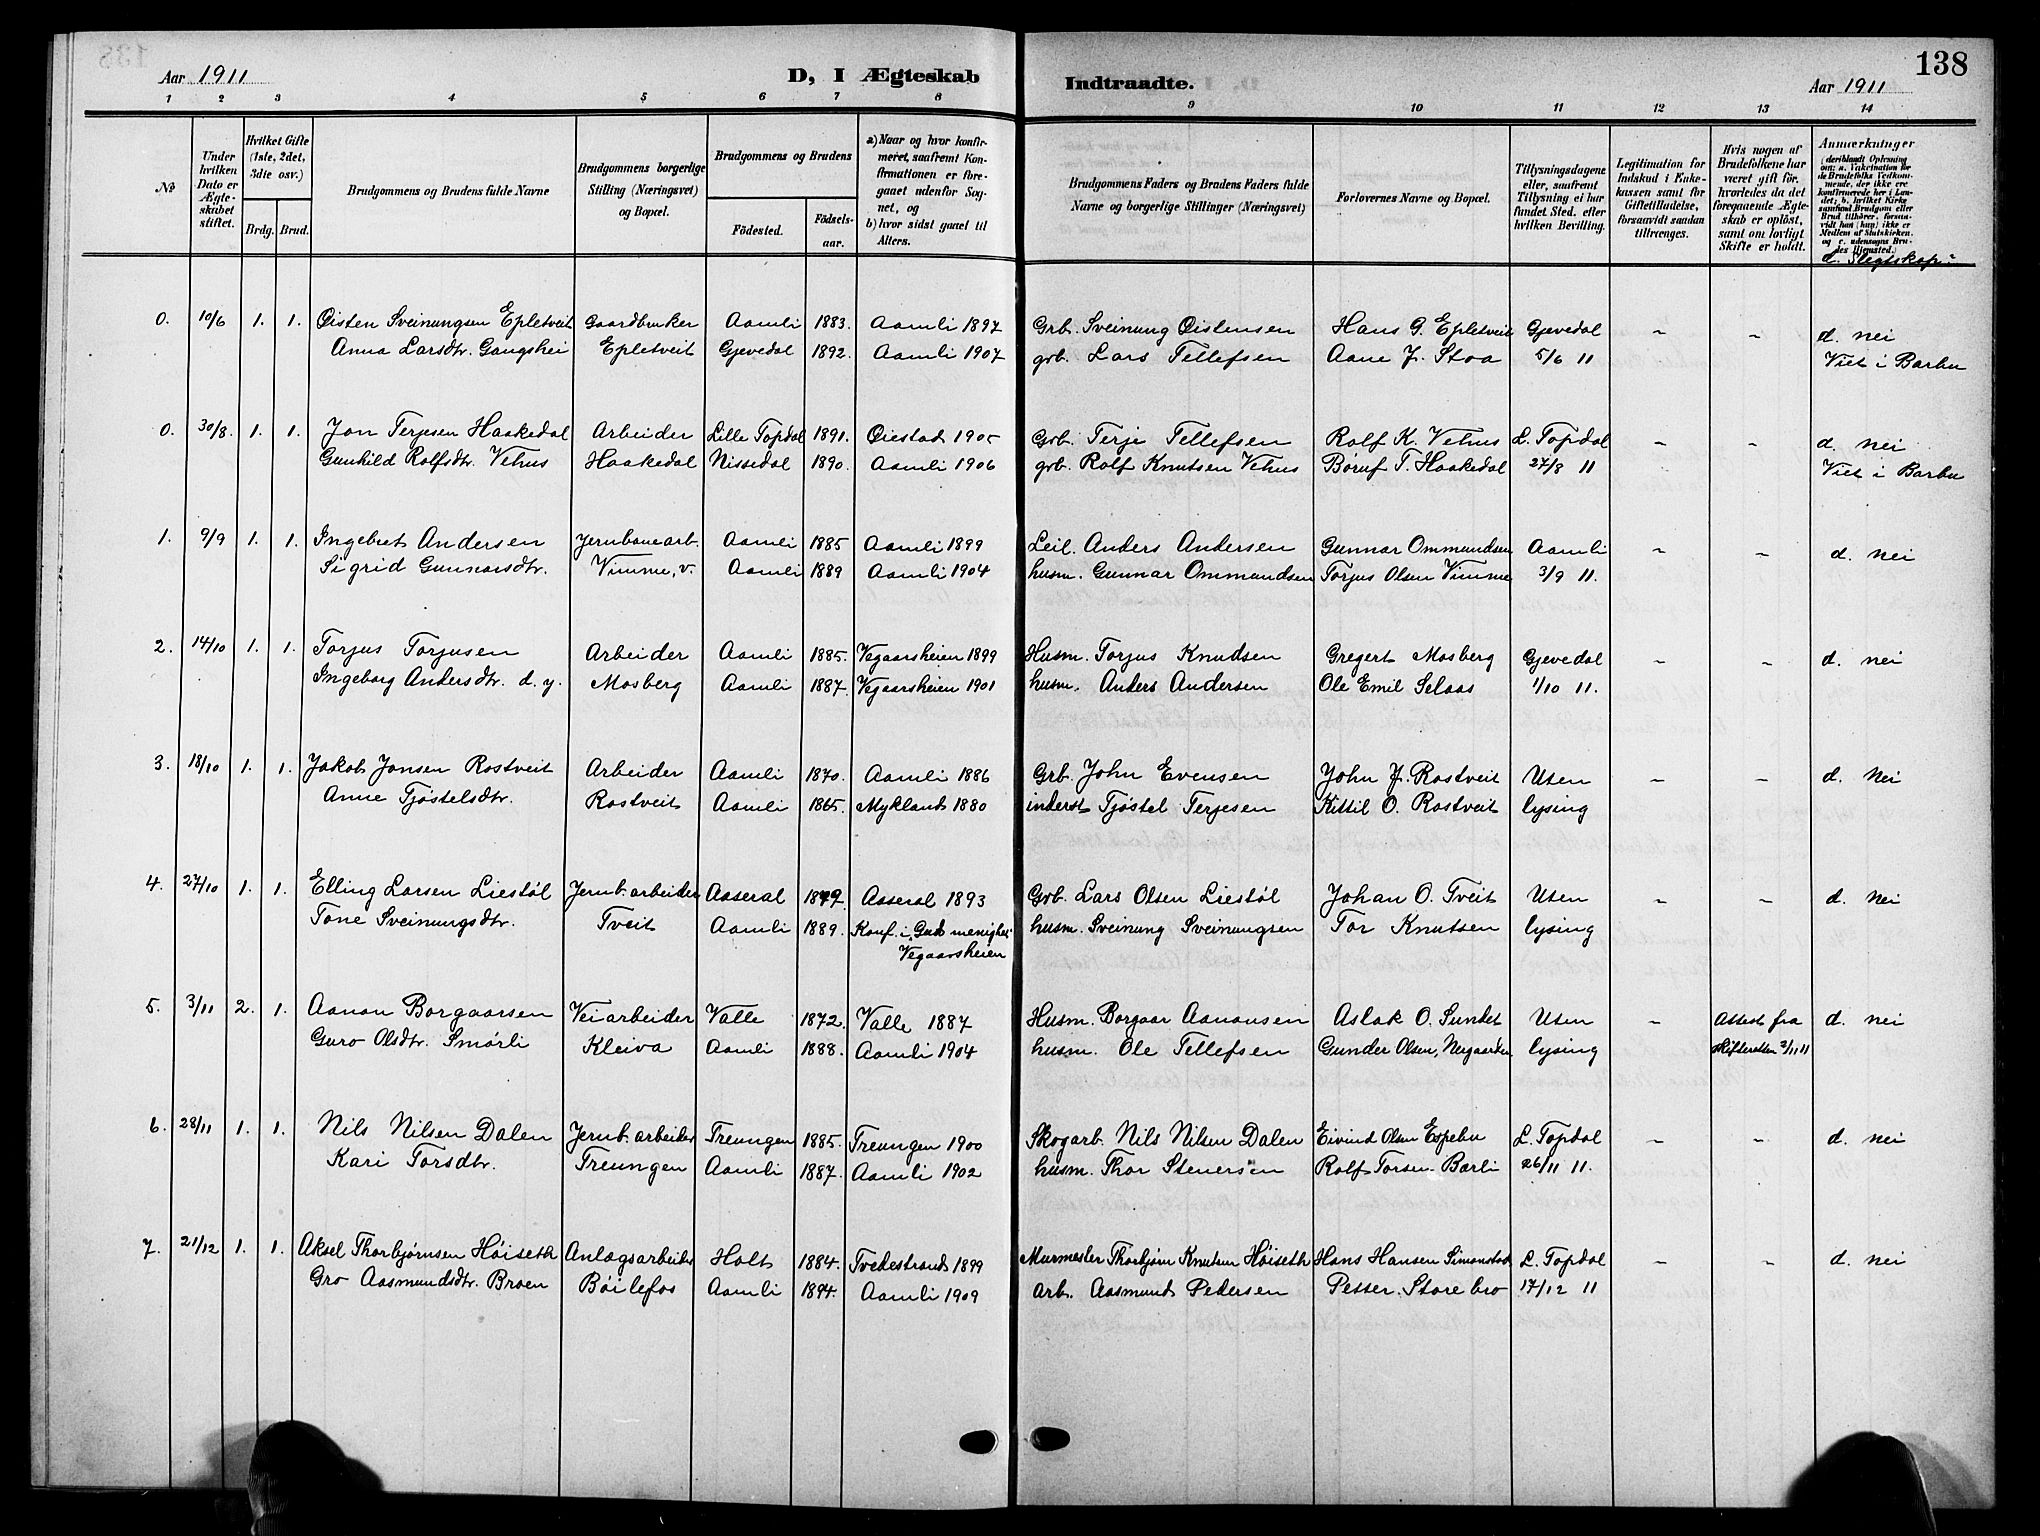 138
Aar 1911
D, I Ægteskab
Indtraadte.
Aar 1911
1 2 3 4 5 6 7 8 9 10 11 12 13 14
No
Under hvilken Dato er Ægteskabet stiftet.
Hvilket Gifte (1ste, 2det, 3die osv.)
Brdg. Brud.
Brudgommens og Brudens fulde Navne
Brudgommens borgerlige Stilling (Næringsvei) og Bopæl.
Brudgommens og Brudens
Födested.
Födselsaar.
a) Naar og hvor konfirmeret, saafremt Konfirmationen er foregaaet udenfor Sognet, og
b) hvor sidst gaaet til Alters.
Brudgommens Faders og Brudens Faders fulde Navne og borgerlige Stillinger (Næringsvei)
Forlovernes Navne og Bopæl.
Tillysningsdagene eller, saafremt Tillysning ei har fundet Sted, efter hvilken Bevilling.
Legitimation for Indskud i Enkekassen samt for Giftetilladelse, forsaavidt saadan tiltrænges.
Hvis nogen af Brudefolkene har været gift før, hvorledes da det foregaaende Ægteskab er opløst, samt om lovligt Skifte er holdt.
Anmærkninger
(deriblandt Oplysning om: a. Vakcination for de Brudefolks Vedkommende, der ikke ere konfirmerede her i Landet; b. hvilket Kirkesamfund Brudgom eller Brud tilhører, forsaavidt han (hun) ikke er Medlem af Statskirken, og c. udensogns Brudes Hjemsted.)
d. Slegtskap:
0. 10/6 1. 1. Øisten Sveinungsen Epletveit Gaardbruker Aamli 1883. Aamli 1897 Grb. Sveinung Øistensen Hans G. Epletveit Gjevedal - - d. nei
Anna Larsdtr. Gangshei Epletveit Gjevedal 1892. Aamli 1907 grb. Lars Tellefsen Aane J. Stoa 5/6 11 Viet i Barbu
0. 30/8. 1. 1. Jon Terjesen Haakedal Arbeider Lille Topdal 1891. Øiestad 1905 Grb. Terje Tellefsen Rolf K. Vehus L. Topdal - - d. nei
Gunhild Rolfsdtr. Vehus Haakedal Nissedal 1890. Aamli 1906 grb. Rolf Knutsen Vehus Børuf T. Haakedal 27/8 11 Viet i Barbu
1. 9/9 1. 1. Ingebret Andersen Jernbanearb. Aamli 1885 Aamli 1899 Leil. Anders Andersen Gunnar Ommundsen Aamli - - d. nei
Sigrid Gunnarsdtr. Vimme, v. Aamli 1889 Aamli 1904 husm. Gunnar Ommundsen Torjus Olsen Vimme 3/9 11.
2. 14/10 1. 1. Torjus Torjusen Arbeider Aamli 1885. Vegaarsheien 1899 Husm. Torjus Knudsen Gregert Mosberg Gjevedal - - d. nei
Ingeborg Andersdtr. d. y. Mosberg Aamli 1887. Vegaarsheien 1901 husm. Anders Andersen Ole Emil Selaas 1/10 11.
3. 18/10 1. 1. Jakob Jonsen Rostveit Arbeider Aamli 1870. Aamli 1886 Grb. John Evensen John J. Rostveit Uten - - d. nei
Anne Tjøstelsdtr. Rostveit Aamli 1865. Mykland 1880 inderst Tjøstel Terjesen Kittil O. Rostveit lysing
4. 27/10 1. 1. Elling Larsen Liestøl Jernb. arbeider Aaseral Aaseral 1893 Grb. Lars Olsen Liestøl Johan O. Tveit Uten - - d. nei
Tone Sveinungsdtr. Tveit Aamli 1889. Konf. i husm. Sveinung Sveinungsen Tor Knutsen lysing
Vegaarsheien
5. 3/11 2. 1. Aanon Borgaarsen Veiarbeider Valle 1872. Valle 1887 Husm. Borgaar Aanonsen Aslak O. Sundet Uten - Attest fra d. nei
Guro Olsdtr. Smørli Kleiva Aamli 1888. Aamli 1904 husm. Ole Tellefsen Gunder Olsen, Nergaarden lysing skifteretten 2/11 11
6. 28/11 1. 1. Nils Nilsen Dalen Jernb. arbeider Treungen 1885. Treungen 1900 Skogarb. Nils Nilsen Dalen Eivind Olsen Espebu L. Topdal - - d. nei
Kari Torsdtr. Treungen Aamli 1887. Aamli 1902 husm. Thor Stenersen Rolf Torsen Barli 26/11 11.
7. 21/12 1. 1. Aksel Thorbjørnsen Høiseth Anlægsarbeider Holt 1884. Tvedestrand 1899 Murmester Thorbjørn Knutsen Høiseth Hans Hansen Simonstad L. Topdal - - d. nei
Gro Aasmundsdtr. Broen Bøilefos Aamli 1894. Aamli 1909 arb. Aasmund Pedersen Petter Storebro 17/12 11